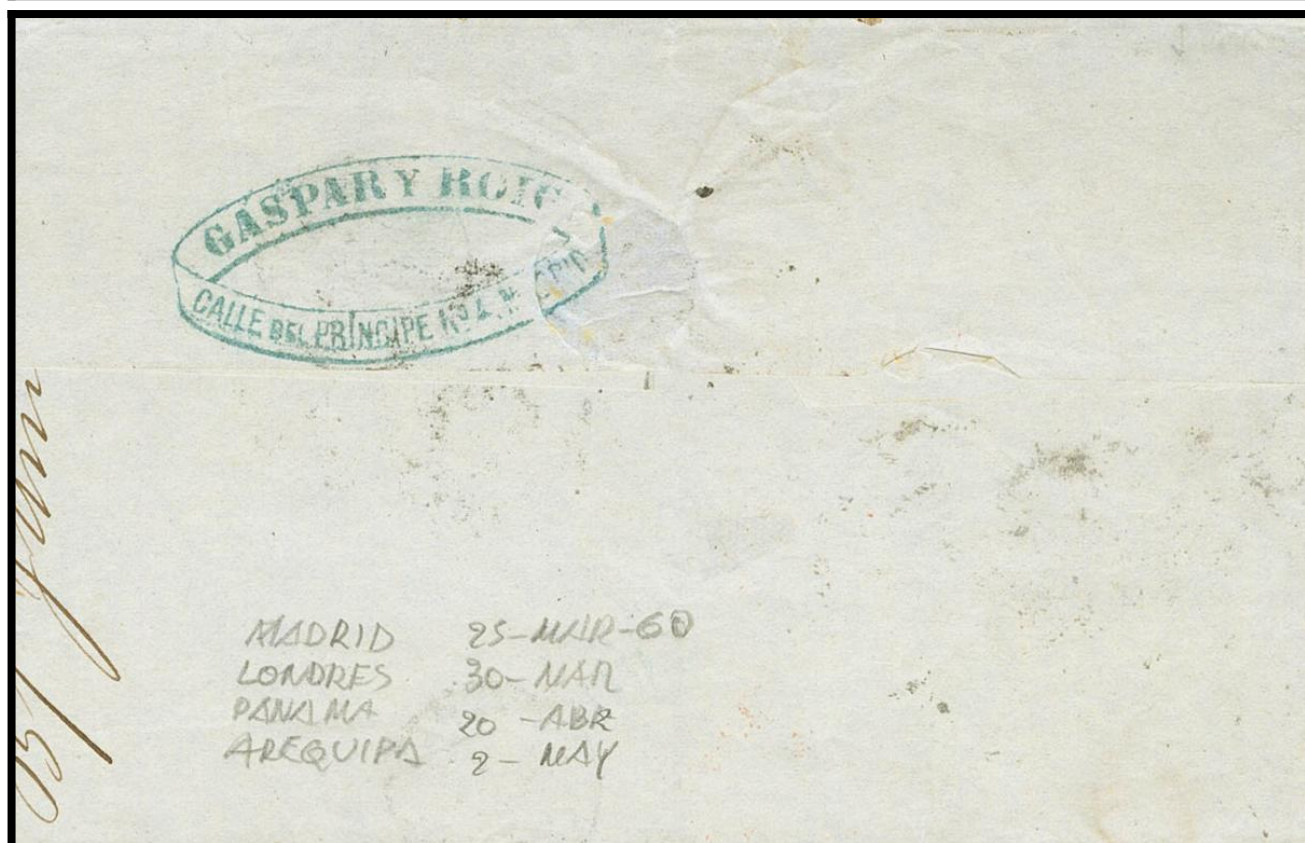 GASPAR Y ROIG
CALLE DEL PRINCIPE No 4.
MADRID 25-MAR-60
LONDRES 30-MAR
PANAMA 20-ABR
AREQUIPA 2-MAY